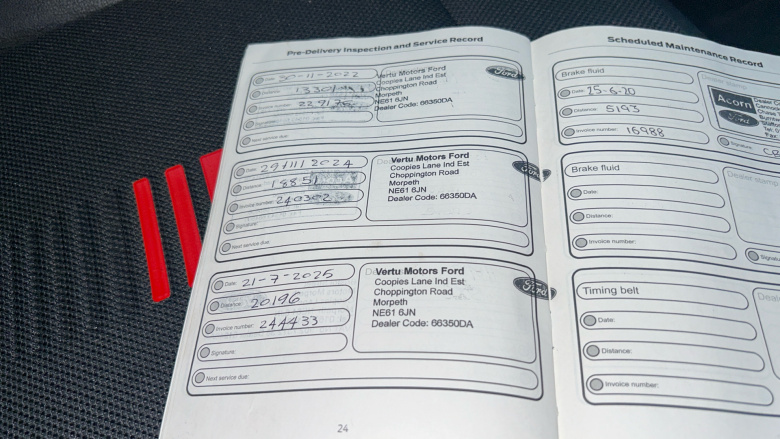 Pre-Delivery Inspection and Service Record
Date: 30-11-2022
Vertu Motors Ford
Coopies Lane Ind Est
Choppington Road
Morpeth
NE61 6JN
Dealer Code: 66350DA
Ford
Next service due:
Date: 29/11/2024
Distance:
Invoice number: 240302
Signature:
Next service due:
Vertu Motors Ford
Coopies Lane Ind Est
Choppington Road
Morpeth
NE61 6JN
Dealer Code: 66350DA
Ford
Date: 21-7-2025
Distance: 20196
Invoice number: 244433
Signature:
Next service due:
Vertu Motors Ford
Coopies Lane Ind Est
Choppington Road
Morpeth
NE61 6JN
Dealer Code: 66350DA
Ford
24
Scheduled Maintenance Record
Brake fluid
Date: 25-6-20
Distance: 5193
Invoice number: 16988
Acorn
Ford
Brake fluid
Date:
Distance:
Invoice number:
Timing belt
Date:
Distance:
Invoice number: